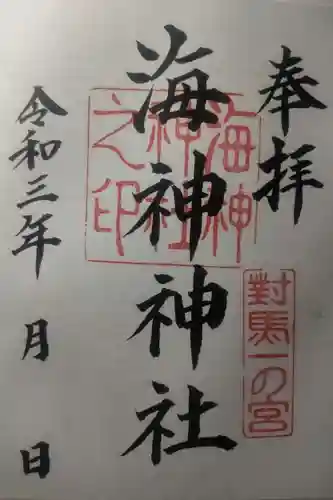 奉拝
海神神社
令和三年 月 日
海神
神社
之印
對馬一の宮